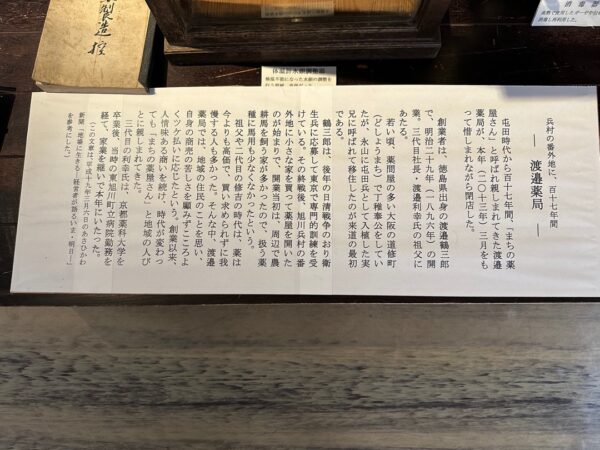 製造控
消毒器
体温計水銀調整器
兵村の番外地に、百十七年間
― 渡邉薬局 ―
屯田時代から百十七年間、「まちの薬
屋さん」と呼ばれ親しまれてきた渡邉
薬局が、本年(二〇一三年)三月をも
って惜しまれながら閉店した。
創業者は、徳島県出身の渡邉鶴三郎
で、明治二十九年(一八九六年)の開
業。三代目社長・渡邉利幸氏の祖父に
あたる。
若い頃、薬問屋の多い大阪の道修町
(どしょうまち)で丁稚奉公をしてい
たが、永山に屯田兵として入植した実
兄に呼ばれて移住したのが来道の最初
である。
鶴三郎は、後年の日清戦争のおり衛
生兵に応募して東京で専門的訓練を受
けている。その終戦後、旭川兵村の番
外地に小さな家を買って薬屋を開いた
のが始まりで、開業当初は、周辺で農
耕馬を飼う家が多かったので、扱う薬
種に馬用も少なくなかったという。
祖父や二代目の修吉の時代は、薬は
今よりも高価で、買い求められずに我
慢する人も多かった。そんな中、渡邉
薬局では、地域の住民のことを思い、
自身の商売の苦しさを顧みずこころよ
くツケ払いに応じたという。創業以来、
人情味ある商いを続け、時代が変わっ
ても「まちの薬屋さん」と地域の人び
とに親しまれてきた。
三代目の利幸氏は、京都薬科大学を
卒業後、当時の東旭川町立病院勤務を
経て、家業を継いで本年にいたった。
(この文章は、平成十九年三月六日のあさひかわ
新聞「地場に生きる―経営者が語るいま・明日―」
を参考にした。)